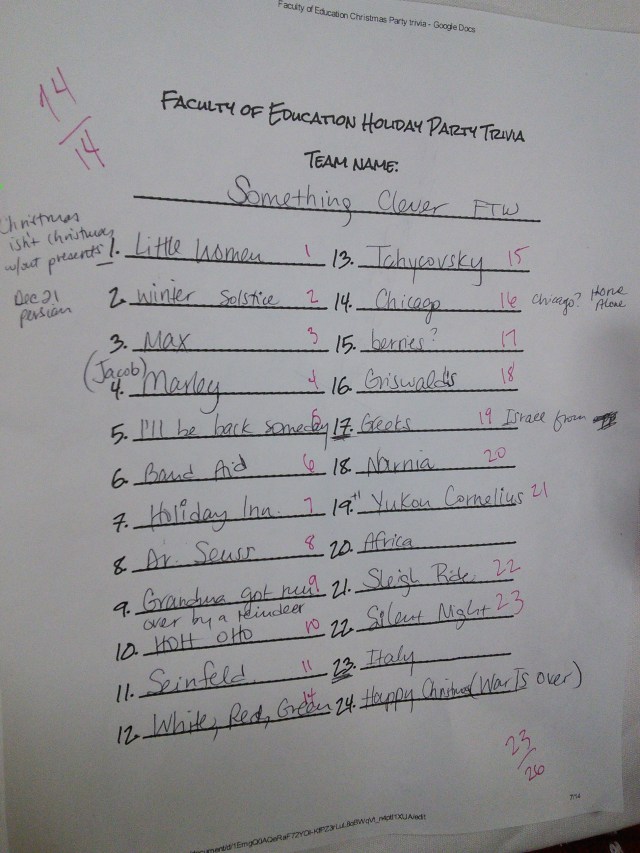 Faculty of Education Christmas Party trivia - Google Docs
14
14
FACULTY OF EDUCATION HOLIDAY PARTY TRIVIA
TEAM NAME:
Something Clever FTW
Christmas
isn't christmas
w/out presents
1. Little Women 1
Dec 21
persian
2. Winter Solstice 2
3. Max 3
(Jacob)
4. Marley 4
5. I'll be back someday 5
6. Band Aid 6
7. Holiday Inn. 7
8. Dr. Seuss 8
9. Grandma got run 9
over by a reindeer
10. HOH OHO 10
11. Seinfeld 11
12. White, Red, Green 14
13. Tchycovsky 15
14. Chicago 16 Chicago? Home
Alone
15. berries? 17
16. Griswald's 18
17. Greeks 19 Israel from
18. Narnia 20
19. Yukon Cornelius 21
20. Africa
21. Sleigh Ride 22
22. Silent Night 23
23. Italy
24. Happy Christmas (War Is over)
23
26
7/14